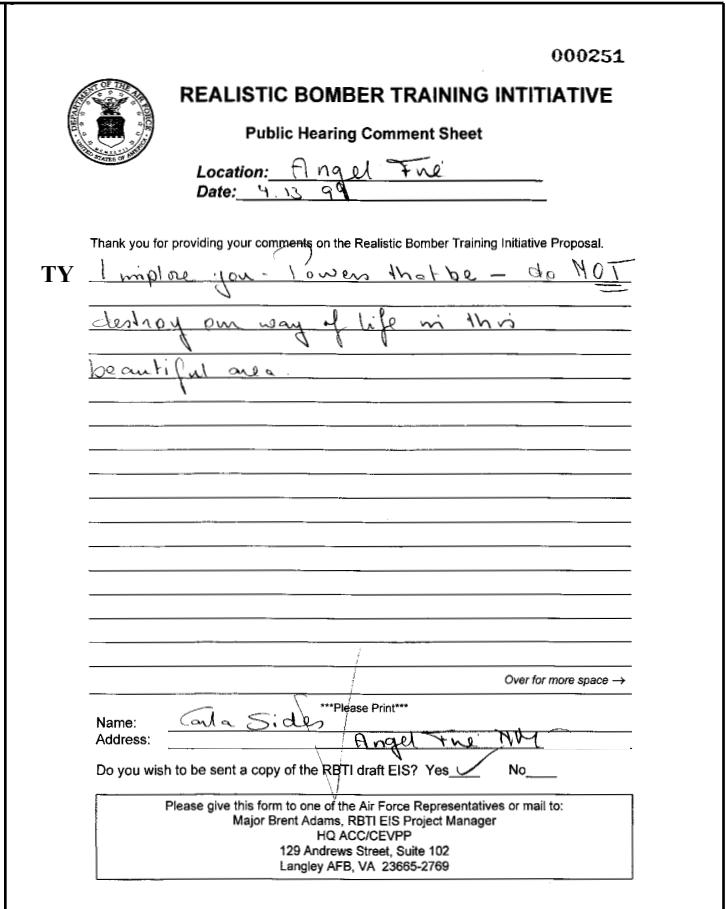 000251
DEPARTMENT OF THE AIR FORCE
UNITED STATES OF AMERICA
REALISTIC BOMBER TRAINING INTITIATIVE
Public Hearing Comment Sheet
Location: Angel Fire
Date: 4.13 99
Thank you for providing your comments on the Realistic Bomber Training Initiative Proposal.
TY I implore you - Powers that be - do NOT
destroy our way of life in this
beautiful area.
Over for more space →
***Please Print***
Name: Carla Sides
Address: Angel Fire NM
Do you wish to be sent a copy of the RBTI draft EIS? Yes ✓ No
Please give this form to one of the Air Force Representatives or mail to:
Major Brent Adams, RBTI EIS Project Manager
HQ ACC/CEVPP
129 Andrews Street, Suite 102
Langley AFB, VA 23665-2769